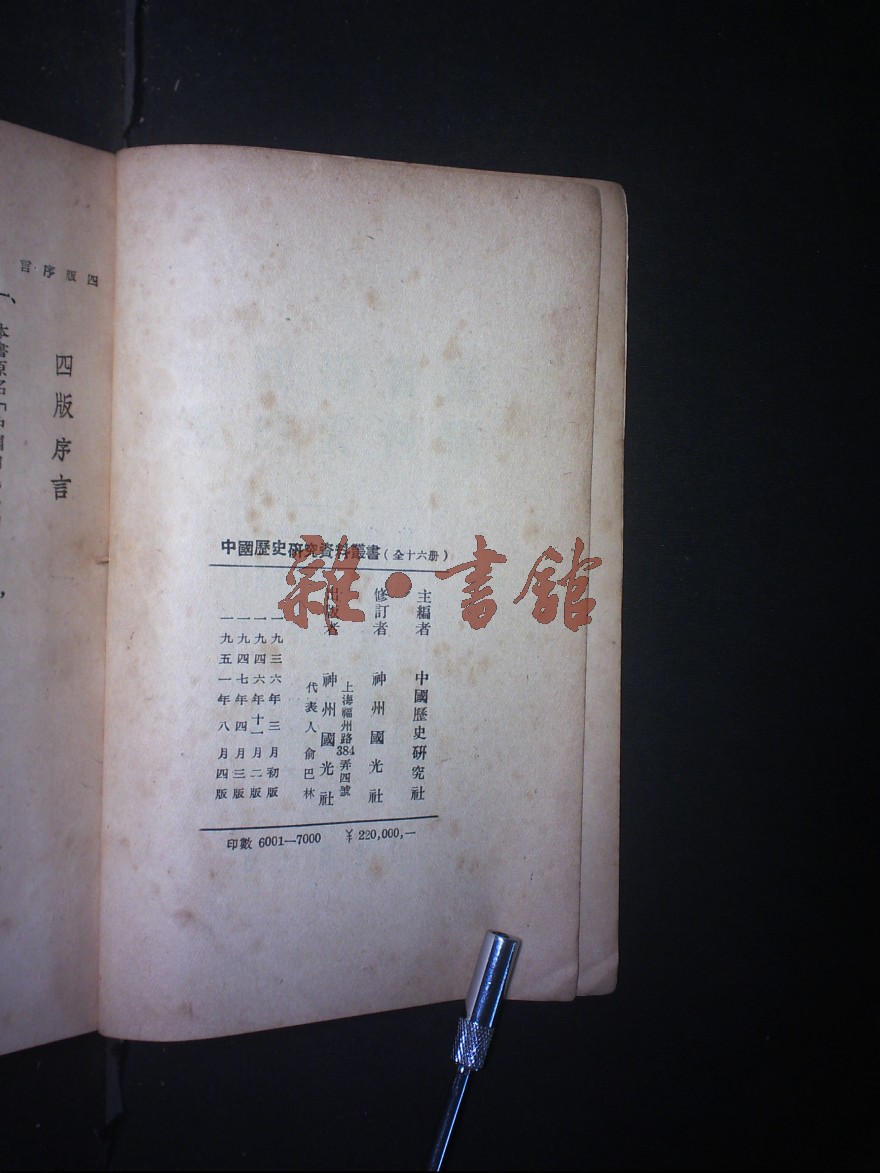 中國歷史研究資料叢書(全十六册)
主編者 中國歷史研究社
修訂者 神州國光社
上海福州路384弄四號
出版者 神州國光社
代表人俞巴林
一九三六年三月初版
一九四六年十一月二版
一九四七年四月三版
一九五一年八月四版
印數 6001—7000 ¥220,000,—
雜·書舘
四版序言
四版序言
一、本書原名「中國